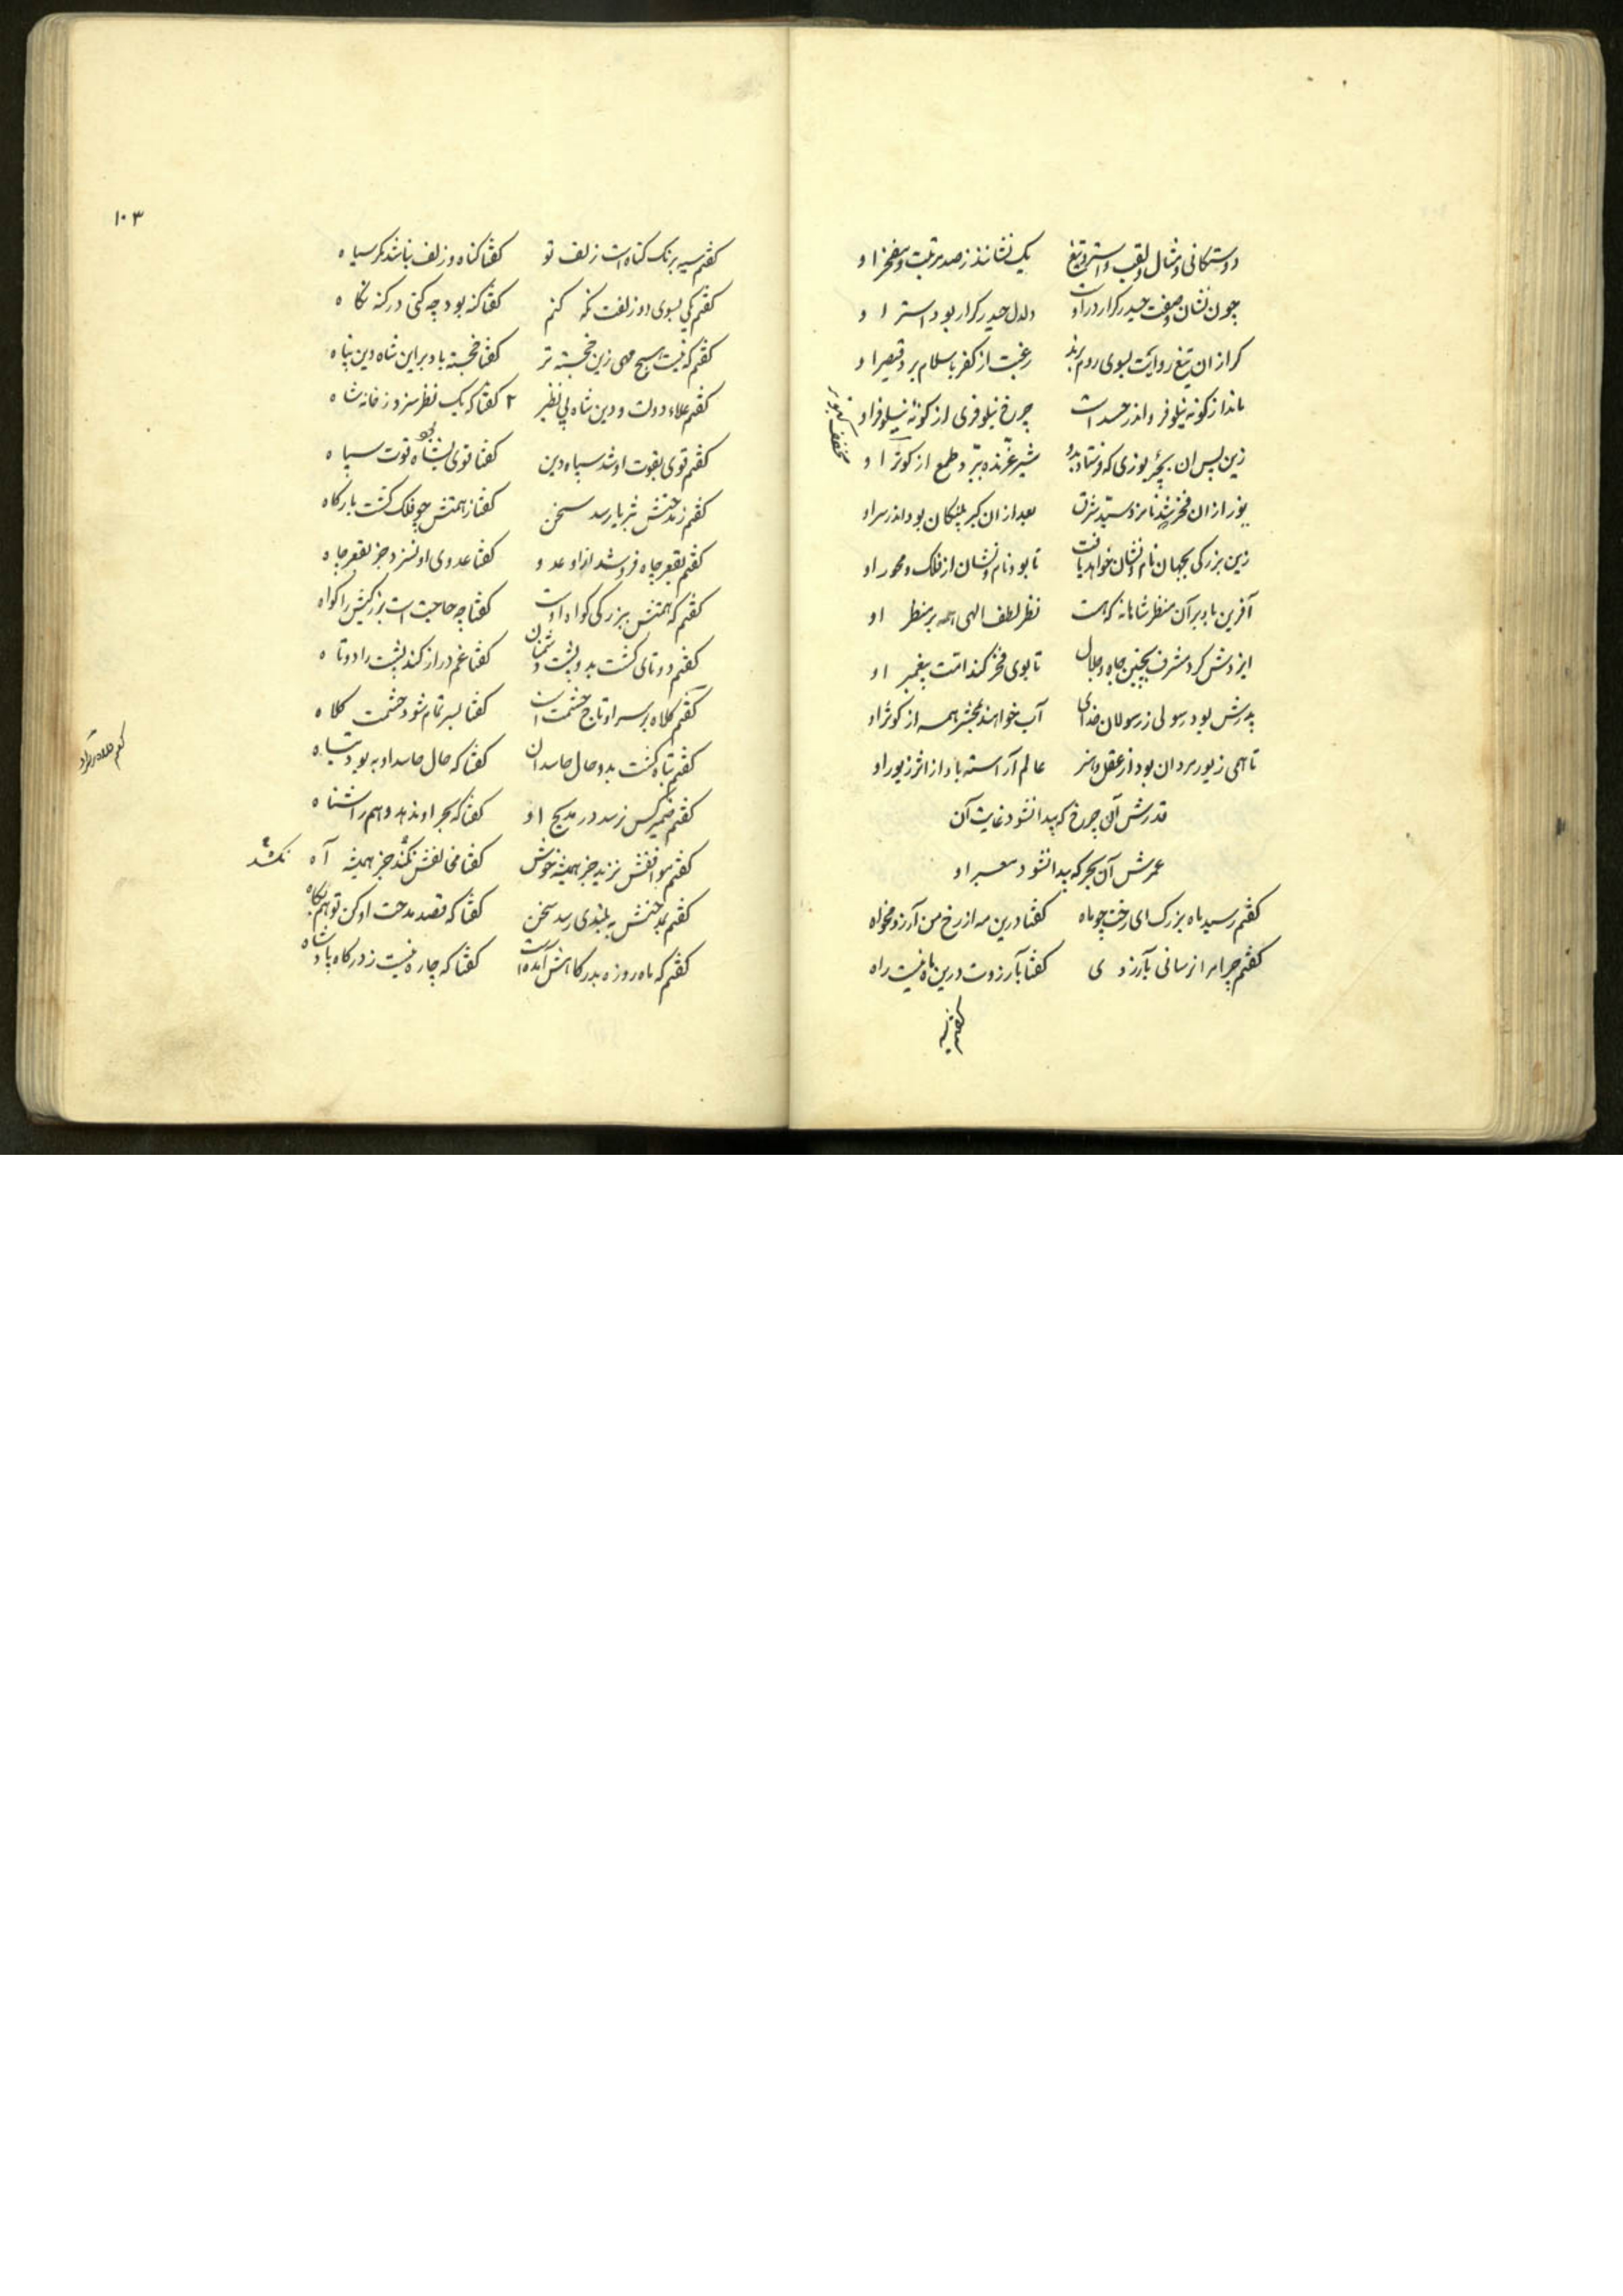 دوستکانی و مثال و لقب و استر و تیغ یک نشانند ز صد مرتبت و مفخر او
چون نشان و صفت حیدر کرار در اوست دلدل حیدر کرار بود استر او
کر از ان تیغ روایت بسوی روم برند رغبت از کفر باسلام برد قیصر او
ماند از کونه نیلوفر و اندر حسد است چرخ نیلوفری از کونهٔ نیلوفر او
زین پس ان بچهٔ یوزی که فرستاد بدو شیر غرنده ببرد طمع از کوتر او
مخفف کبوتر
یوز از ان فخر نامزد سید شرق بعد از ان کبر پلنکان بود اندر سر او
زین بزرکی بجهان نام و نشان خواهد یافت تا بود نام و نشان از فلک و محور او
آفرین باد بر آن منظر شاهانه که هست نظر لطف الهی همه بر منظر او
ایزدش کرد مشرف بچنین جاه و جلال تا بوی فخر کند امت پیغمبر او
پدرش بود رسولی ز رسولان خدای آب خواهند بمحشر همه از کوثر او
تا همی زیور مردان بود از عقل و هنر عالم آراسته باد از اثر زیور او
قدرش آن چرخ که پیدا نشود غایت آن
عمرش آن بحر که پیدا نشود معبر او
کفتم رسید ماه بزرک ای رخت چو ماه کفتا درین مه از رخ من آرزو مخواه
کفتم چرا مرا نرسانی بآرزوی کفتا بآرزوت درین ماه نیست راه
کفتم سیه
۱۰۳
کفتم سیه برنک کناه است زلف تو کفتا کناه و زلف نباشد مکر سیاه
کفتم یکی بسوی دو زلفت نکه کنم کفتا کنه بود چه کنی در کنه نکاه
کفتم که نیست هیچ مهی زین خجسته تر کفتا خجسته باد بر این شاه دین پناه
کفتم علاء دولت و دین شاه بی نظیر ۲ کفتا که یک نظر سزد ز خانه شاه
کفتم قوی بقوت او شد سپاه دین کفتا قوی بشاه بود قوت سپاه
کفتم ز مدحتش بثریا رسد سخن کفتا ز همتش چو فلک کشت بارکاه
کفتم بقعر چاه فرو شد ازو عدو کفتا عدوی او نسزد جز بقعر چاه
کفتم که همتش ببزرکی کواه اوست کفتا چه حاجت است بزرکیش را کواه
کفتم دوتای کشت بدو پشت دشمنان کفتا غم دراز کند پشت را دوتاه
کفتم کلاه بر سر او تاج حشمت است کفتا بسر تمام شود حشمت کلاه
کفتم تباه کشت بدو حال حاسدان کفتا که حال حاسد او به بود تباه
کفتم ضمیر کس نرسد در مدیح او کفتا که بحر او ندهد وهم را شناه
کفتم موافقش نزید جز همیشه خوش کفتا مخالفش نکند جز همیشه آه نکشد
کفتم بمدحتش به بلندی رسد سخن کفتا که قصد مدحت او کن تو هم پکاه
کفتم که ماه روزه بدرکاهش آمده است کفتا که چاره نیست ز درکاه پادشاه